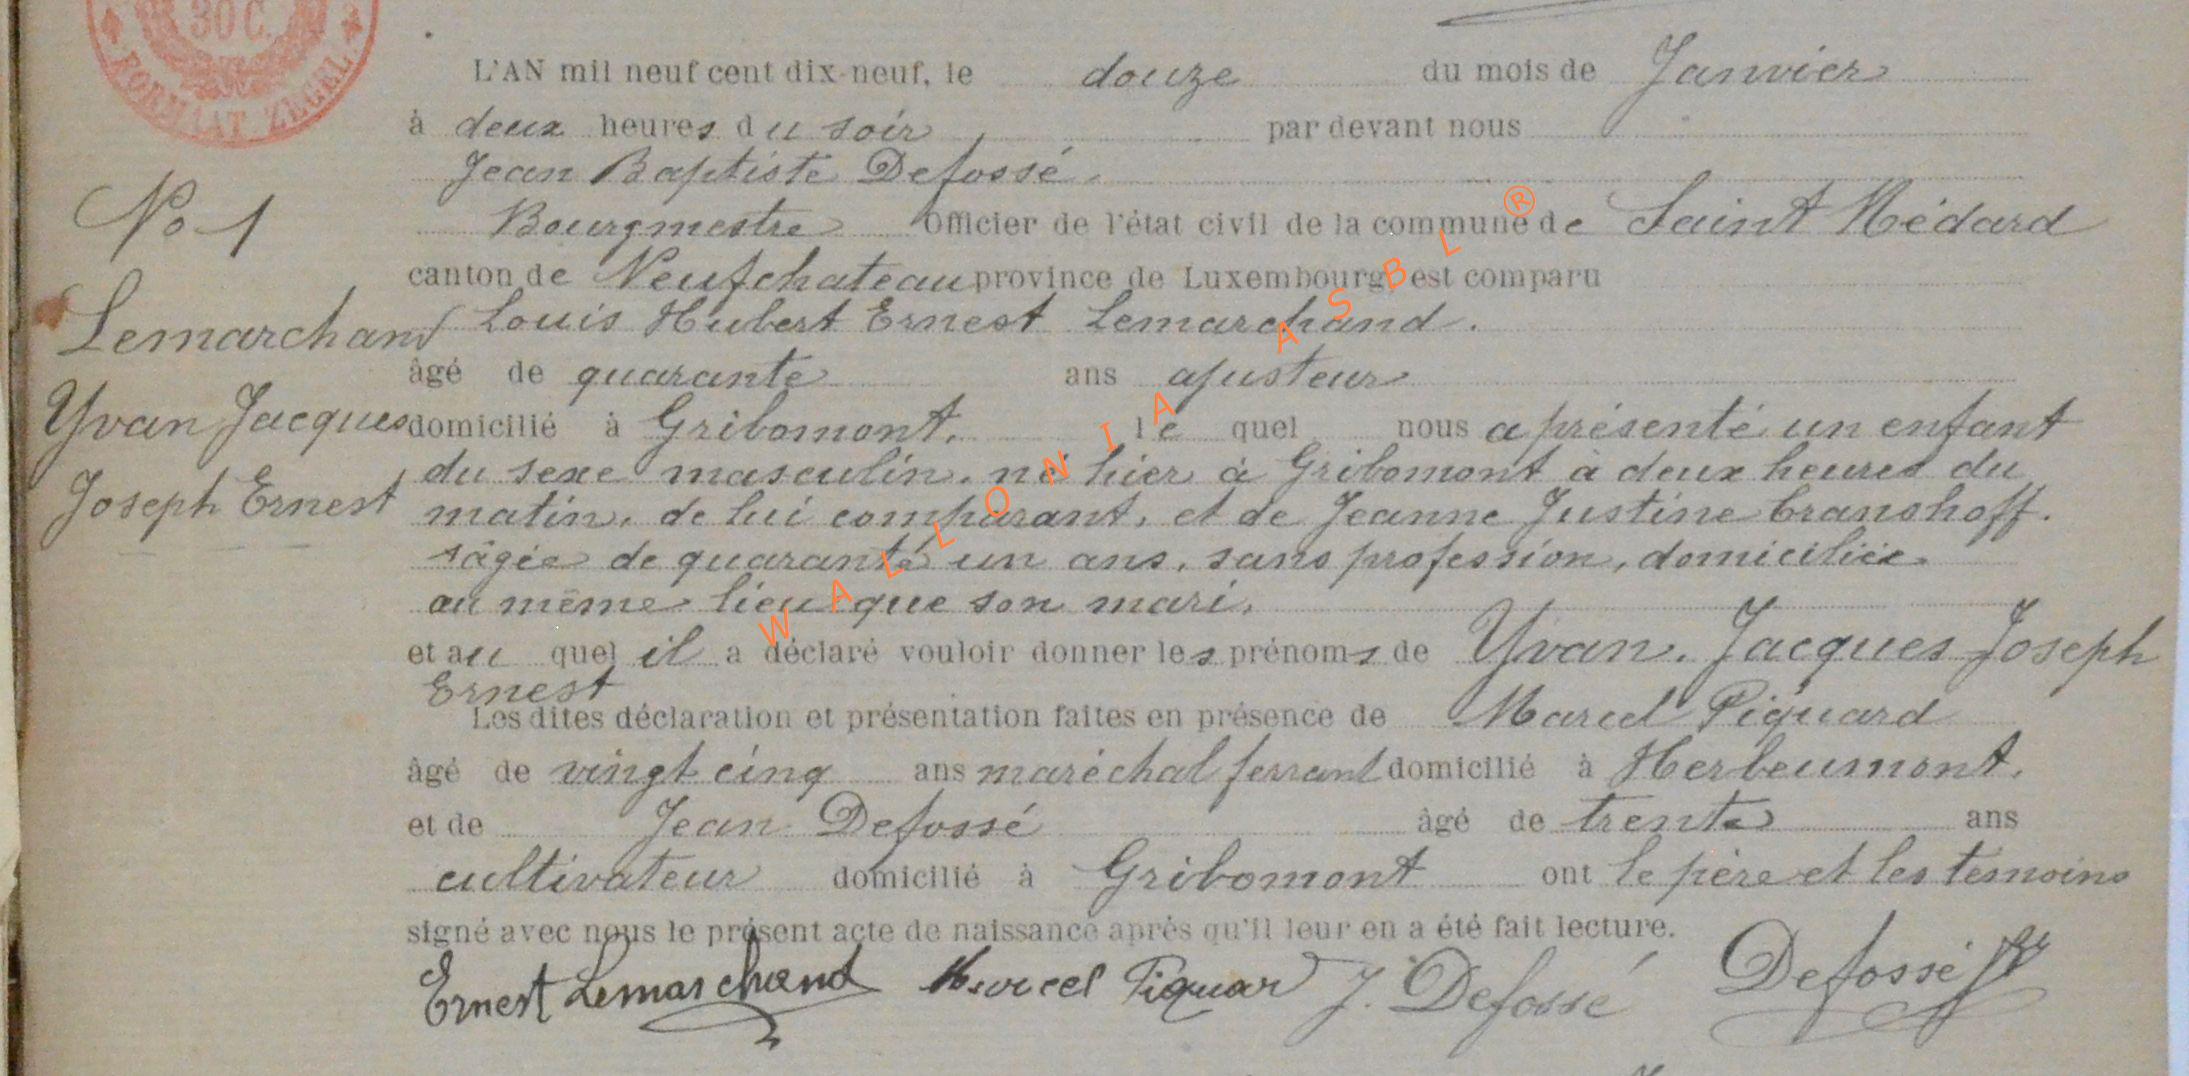 30 C.
FORMAAT ZEGEL
L'AN mil neuf cent dix-neuf, le douze du mois de Janvier
à deux heures du soir par devant nous
Jean Baptiste Defossé.
Bourgmestre Officier de l'état civil de la commune de Saint Médard
canton de Neufchateau province de Luxembourg, est comparu
Louis Hubert Ernest Lemarchand.
âgé de quarante ans ajusteur
domicilié à Gribomont. le quel nous a présenté un enfant
du sexe masculin. né hier à Gribomont à deux heures du
matin, de lui comparant, et de Jeanne Justine Cranshoff.
âgée de quarante un ans, sans profession, domiciliée
au même lieu que son mari,
et au quel il a déclaré vouloir donner les prénoms de Yvan. Jacques Joseph
Ernest
Les dites déclaration et présentation faites en présence de Marcel Piquard
âgé de vingt cinq ans maréchal ferrant domicilié à Herbeumont.
et de Jean Defossé âgé de trente ans
cultivateur domicilié à Gribomont ont le père et les temoins
signé avec nous le présent acte de naissance après qu'il leur en a été fait lecture.
Ernest Lemarchand Marcel Piquar J. Defossé Defossé
No 1
Lemarchand
Yvan Jacques
Joseph Ernest
WALLONIA ASBL ®